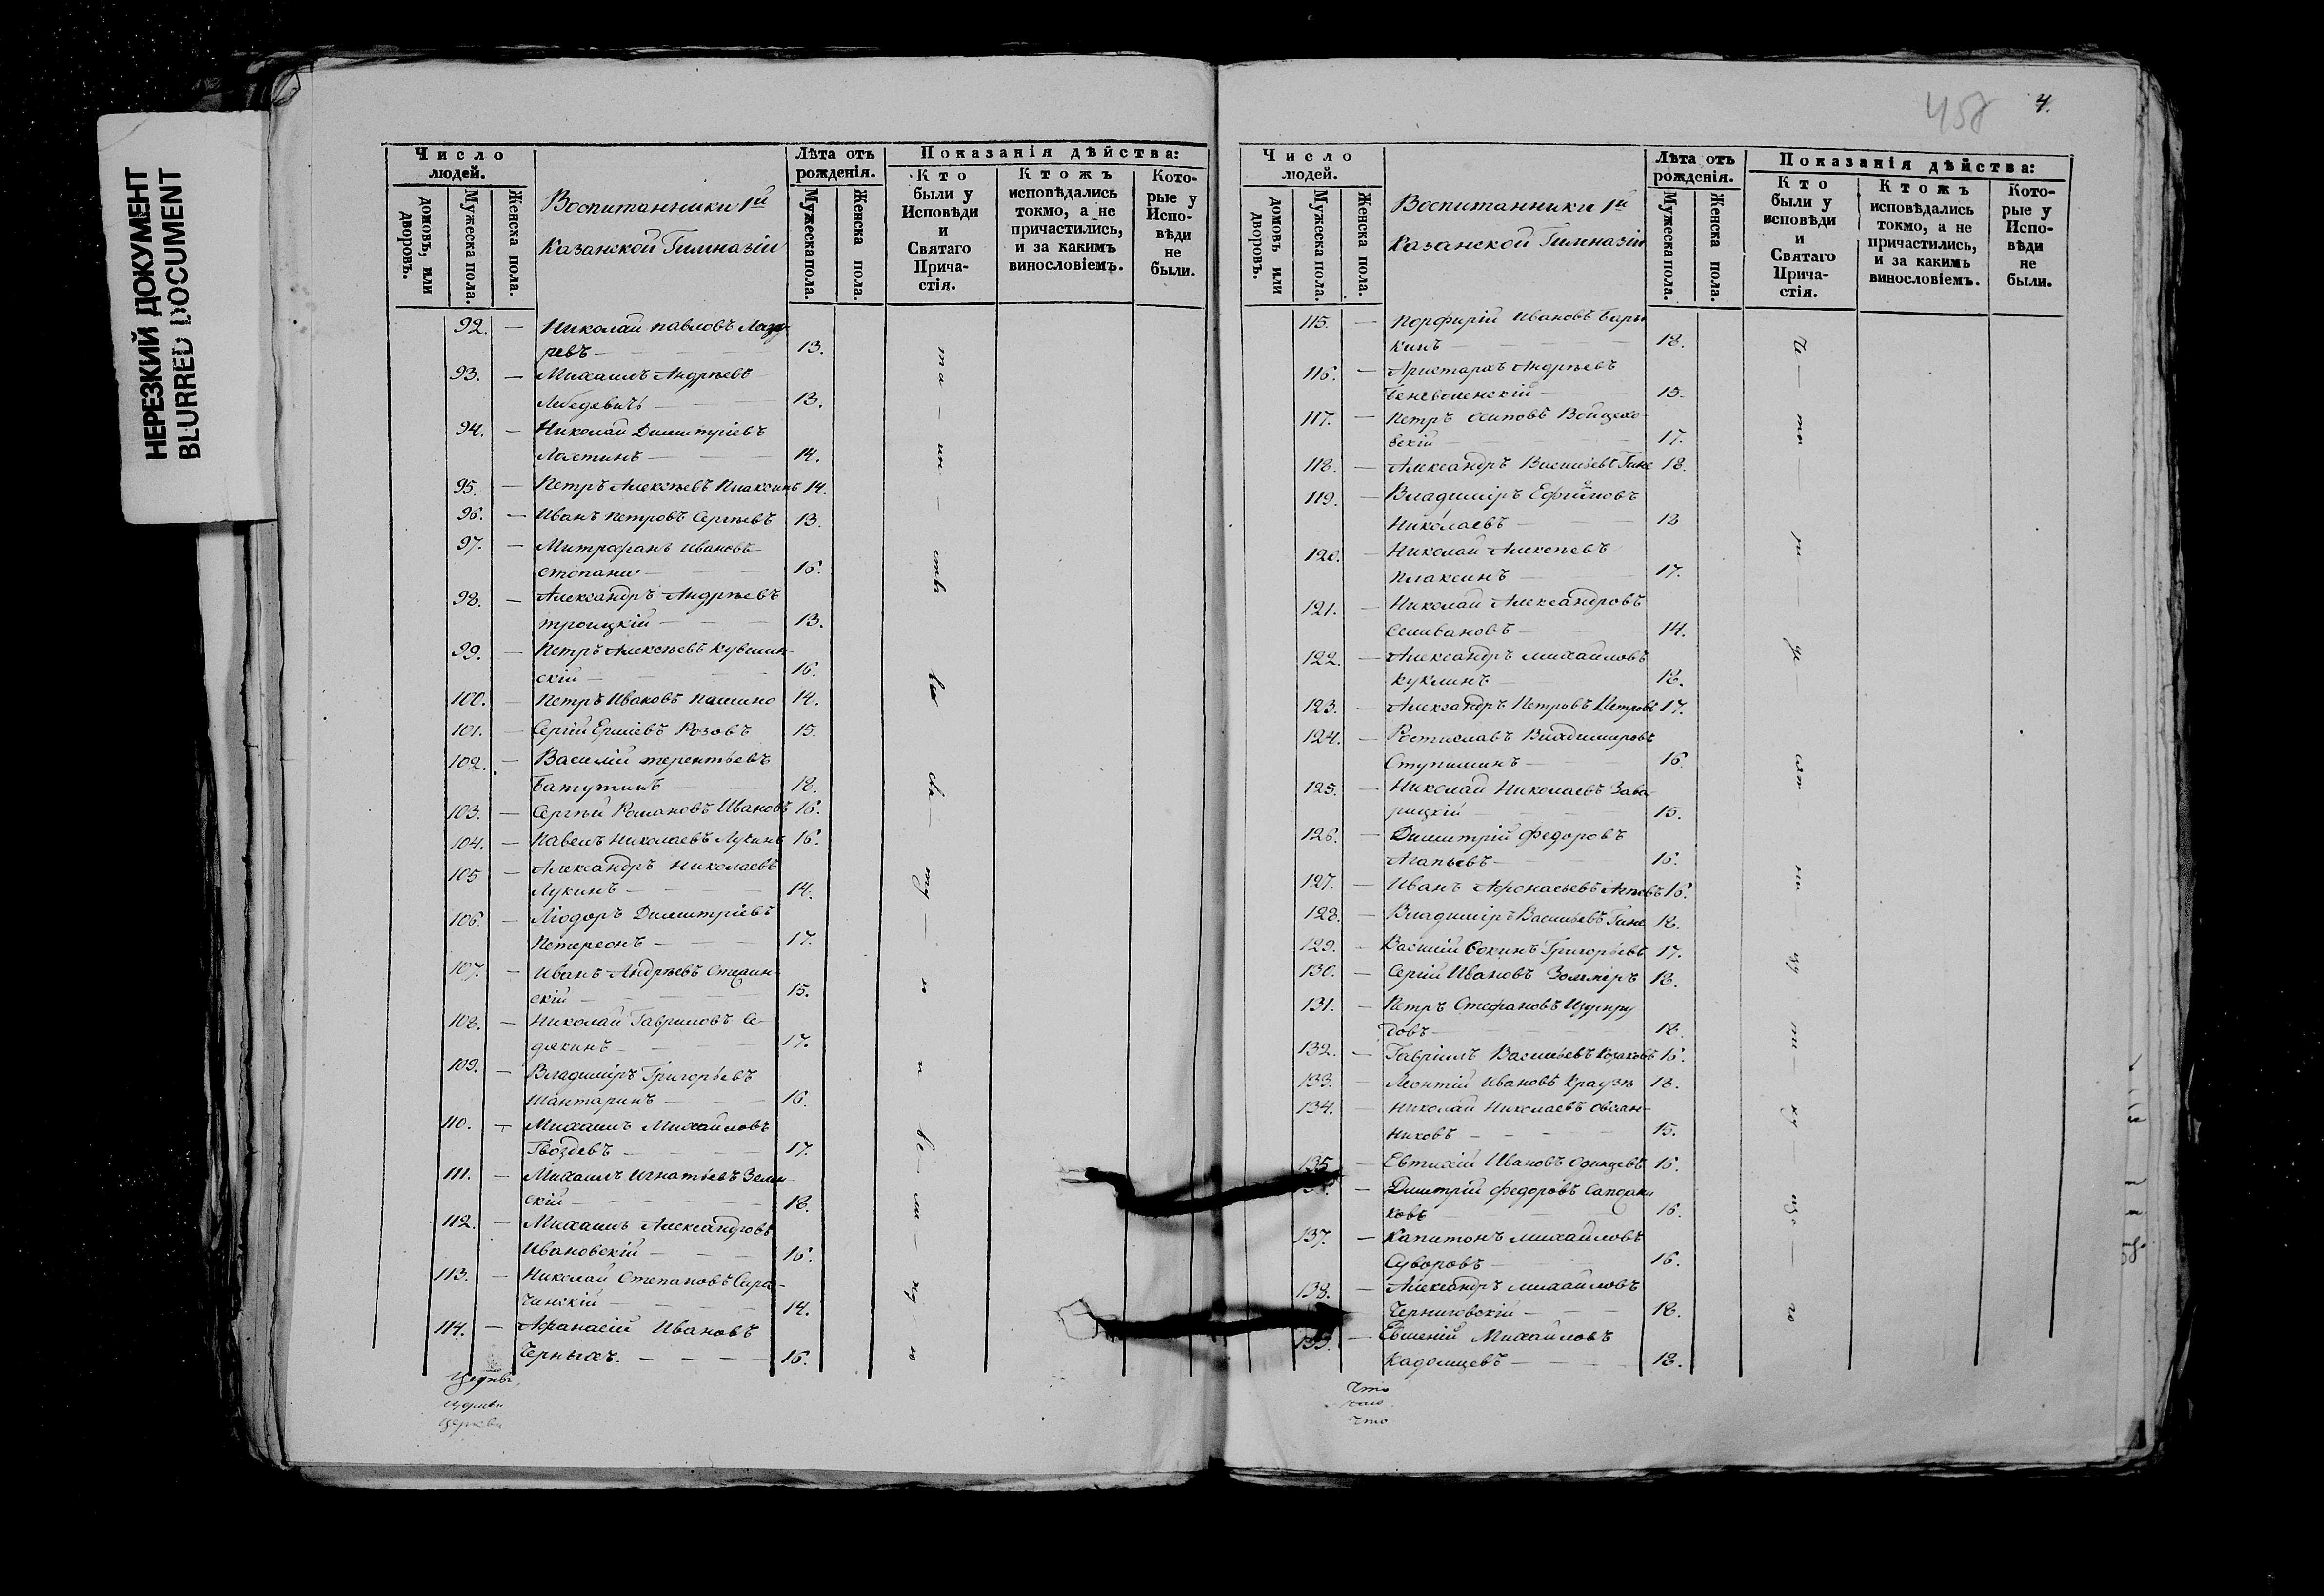 НЕРЕЗКИЙ ДОКУМЕНТ
BLURRED DOCUMENT
Число людей.
домовъ, или дворовъ.
Мужеска пола.
Женска пола.
Воспитанники 1й
Казанской Гимназіи
Лѣта отъ рожденія.
Мужеска пола.
Женска пола.
Показанія дѣйства:
Кто были у Исповѣди и Святаго Прича-стія.
Ктожъ исповѣдались токмо, а не причастились, и за какимъ винословіемъ.
Кото-рые у Испо-вѣди не были.
92. — Николай Павловъ Лаза-
ревъ — 13.
93. — Михаилъ Андрѣевъ
Лебедевичъ — 13.
94. — Николай Димитріевъ
14.
95. — Петръ Алексѣевъ Плаксинъ 14.
96. — Иванъ Петровъ Сергѣевъ 13.
97. — Митрофанъ Ивановъ
Стопани — 16.
98. — Александръ Андрѣевъ
Троицкій — 13.
99. — Петръ Алексѣевъ Кувшин-
скій — 16.
100. — Петръ Ивановъ Пашино 14.
101. — Сергій Розовъ 15.
102. — Василій Терентьевъ
Батутинъ — 18.
103. — Сергѣй Романовъ Ивановъ 16.
104. — Павелъ Николаевъ Лукинъ 16.
105 — Александръ Николаевъ
Лукинъ — 14.
106. — Ліодоръ Димитріевъ
Петерсонъ — 17.
107. — Иванъ Андрѣевъ
скій — 15.
108. — Николай Гавриловъ Се-
дякинъ — 17.
109. — Владиміръ Григорьевъ
Шантаринъ — 16.
110. — Михаилъ Михайловъ
Гвоздевъ — 17.
111. — Михаилъ Игнатьевъ
скій — 18.
112. — Михаилъ Александровъ
Ивановскій — 16.
113. — Николай Степановъ
чинскій — 14.
114. — Афанасій Ивановъ
Черныхъ. — 16.
Церкви
Церкви
458
4.
Число людей.
домовъ или дворовъ.
Мужеска пола.
Женска пола.
Воспитанники 1й
Казанской Гимназіи
Лѣта отъ рожденія.
Мужеска пола.
Женска пола.
Показанія дѣйства:
Кто были у исповѣди и Святаго Прича-стія.
Ктожъ исповѣдались токмо, а не причастились, и за какимъ винословіемъ.
Кото-рые у Испо-вѣди не были.
115. — Порфирій Ивановъ
кинъ — 18.
116. — Аристархъ Андрѣевъ
Беневоленскій — 15.
117. — Петръ Осиповъ Войцехо-
вскій — 17.
118. — Александръ Васильевъ Гине 18.
119. — Владиміръ
Николаевъ — 18
120. — Николай Алексѣевъ
Плаксинъ — 17.
121. — Николай Александровъ
Селивановъ — 14.
122. — Александръ Михайловъ
Куклинъ — 18.
123. — Александръ Петровъ Петровъ 17.
124. — Ростиславъ Владимировъ
Ступишинъ — 16.
125. — Николай Николаевъ Зава-
рицкій — 15.
126. — Димитрій Федоровъ
Агапьевъ — 16.
127. — Иванъ Афонасьевъ 16.
128. — Владиміръ Васильевъ Гине 18.
129. — Василій Сокинъ Григорьевъ 17.
130. — Сергій Ивановъ 18.
131. — Петръ Стефановъ Изумру
довъ — 18.
132. — Гавріилъ Васильевъ Козаковъ 16.
133. — Леонтій Ивановъ Краузе 18.
134. — Николай Николаевъ Овсян-
никовъ — 15.
135. — Евтихій Ивановъ Одинцевъ 16.
— Димитрій Федоровъ
ковъ 16.
137. — Капитонъ Михайловъ
Суворовъ — 16.
138. — Александръ Михайловъ
Черниговскій — 18.
139. — Евгеній Михайловъ
Кадомцевъ — 18.
Что
что